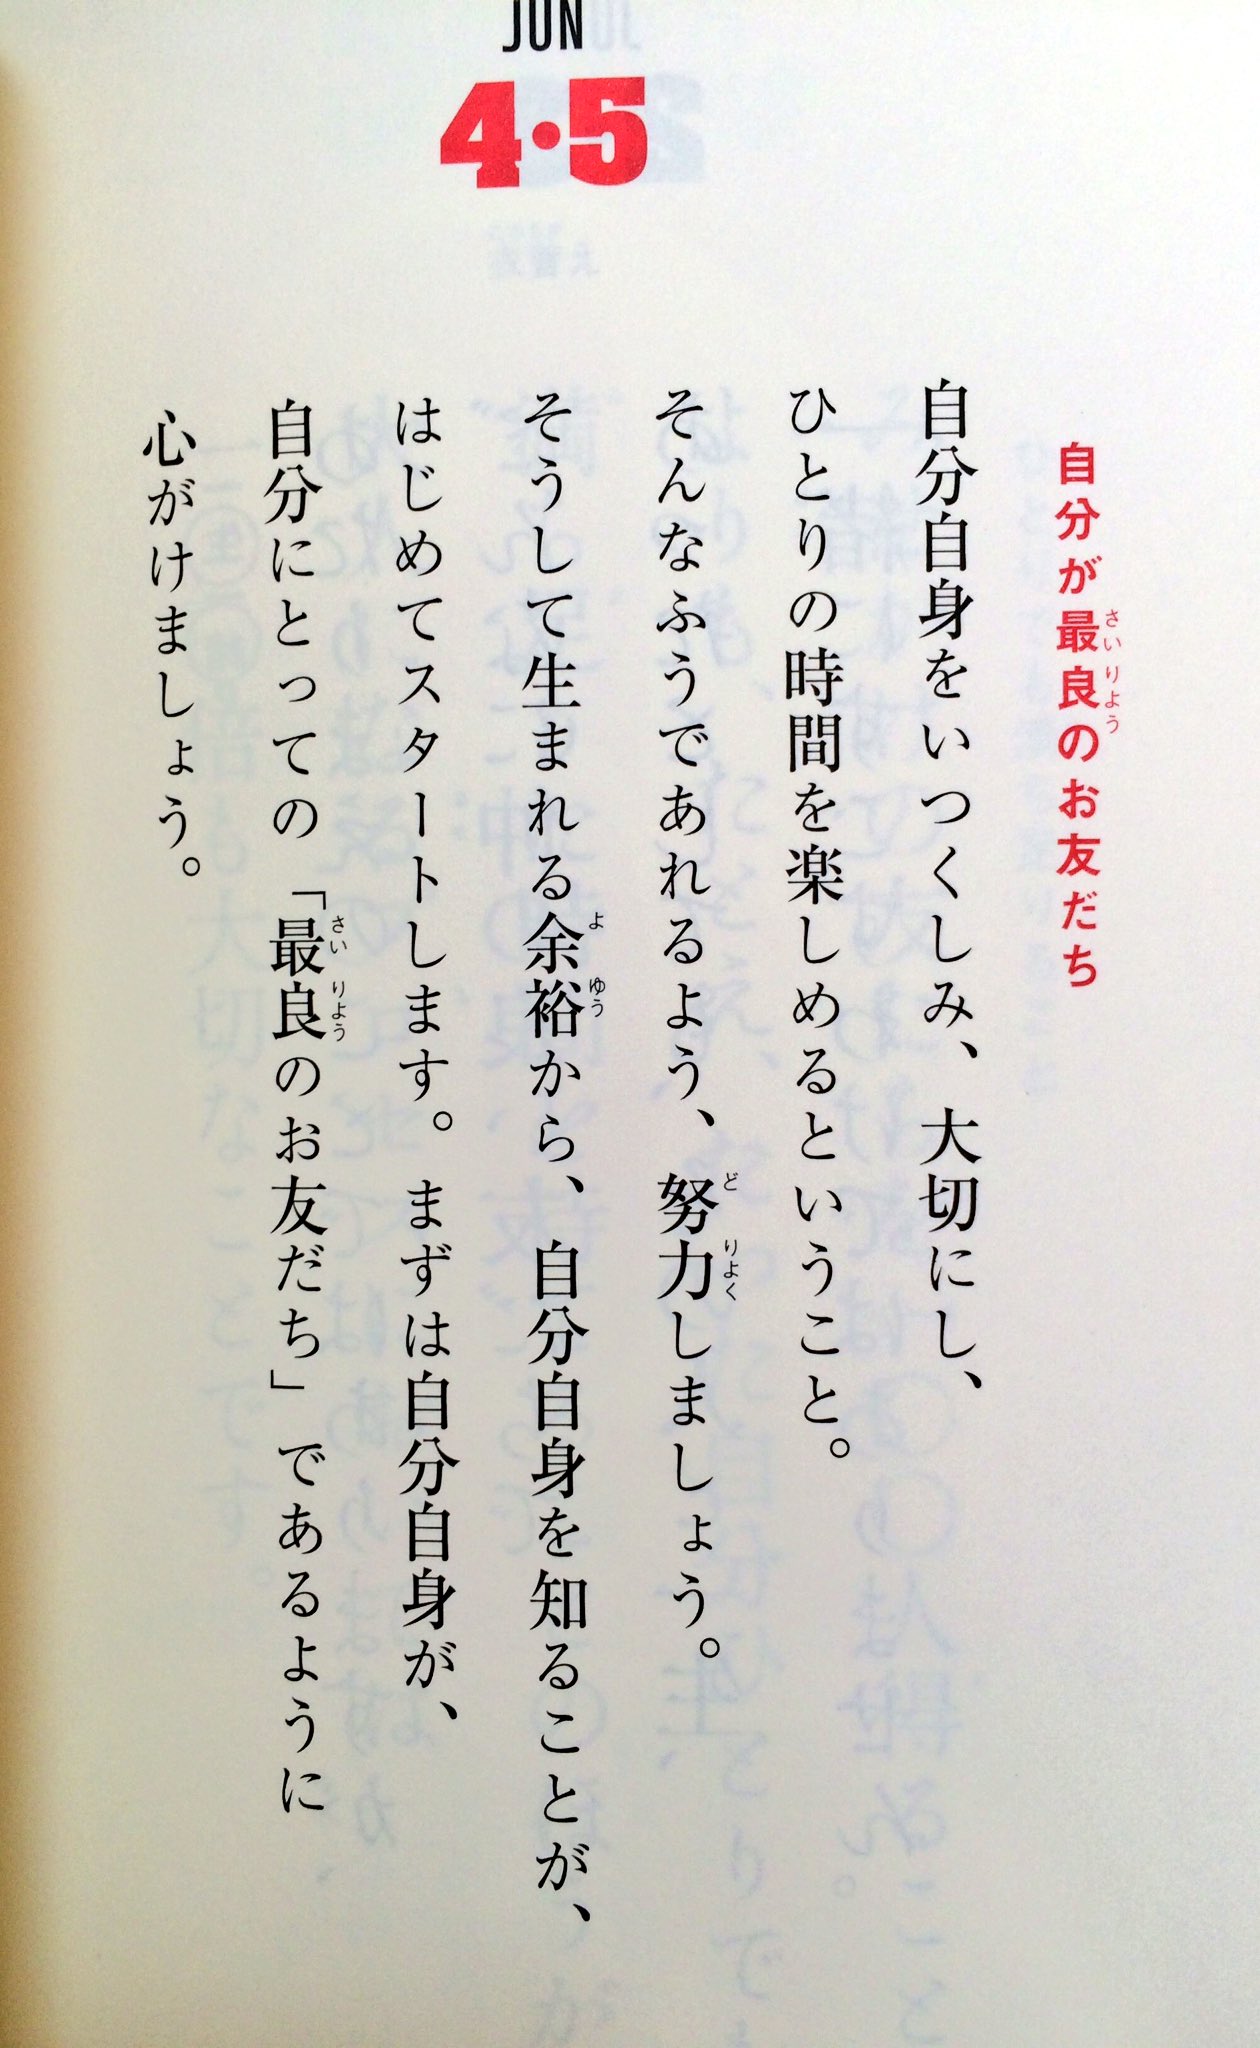 JUN
4・5
自分が最良のお友だち
自分自身をいつくしみ、大切にし、
ひとりの時間を楽しめるということ。
そんなふうであれるよう、努力しましょう。
そうして生まれる余裕から、自分自身を知ることが、
はじめてスタートします。まずは自分自身が、
自分にとっての「最良のお友だち」であるように
心がけましょう。